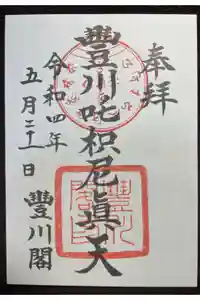 奉拝
豐川吒枳尼眞天
令和四年
五月二十一日
豐川閣